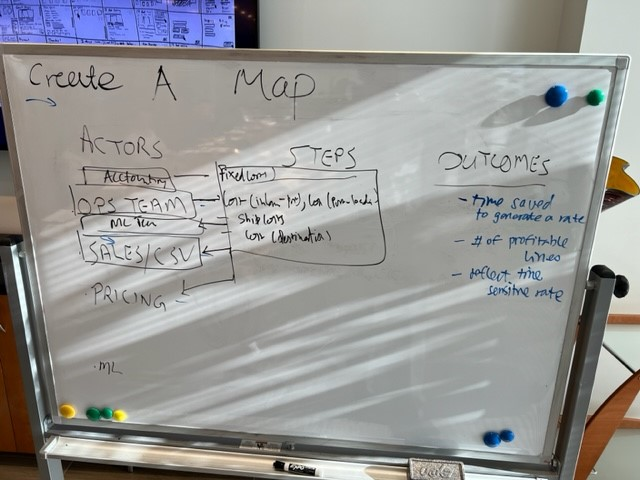 Create A Map
ACTORS
Accounting
OPS TEAM
ML Tech
SALES/CSV
PRICING
ML
STEPS
Fixed Costs
Cost
Ship Costs
Cost (destination)
OUTCOMES
- time saved
to generate a rate
- # of profitable
lines
- reflect time
sensitive rate